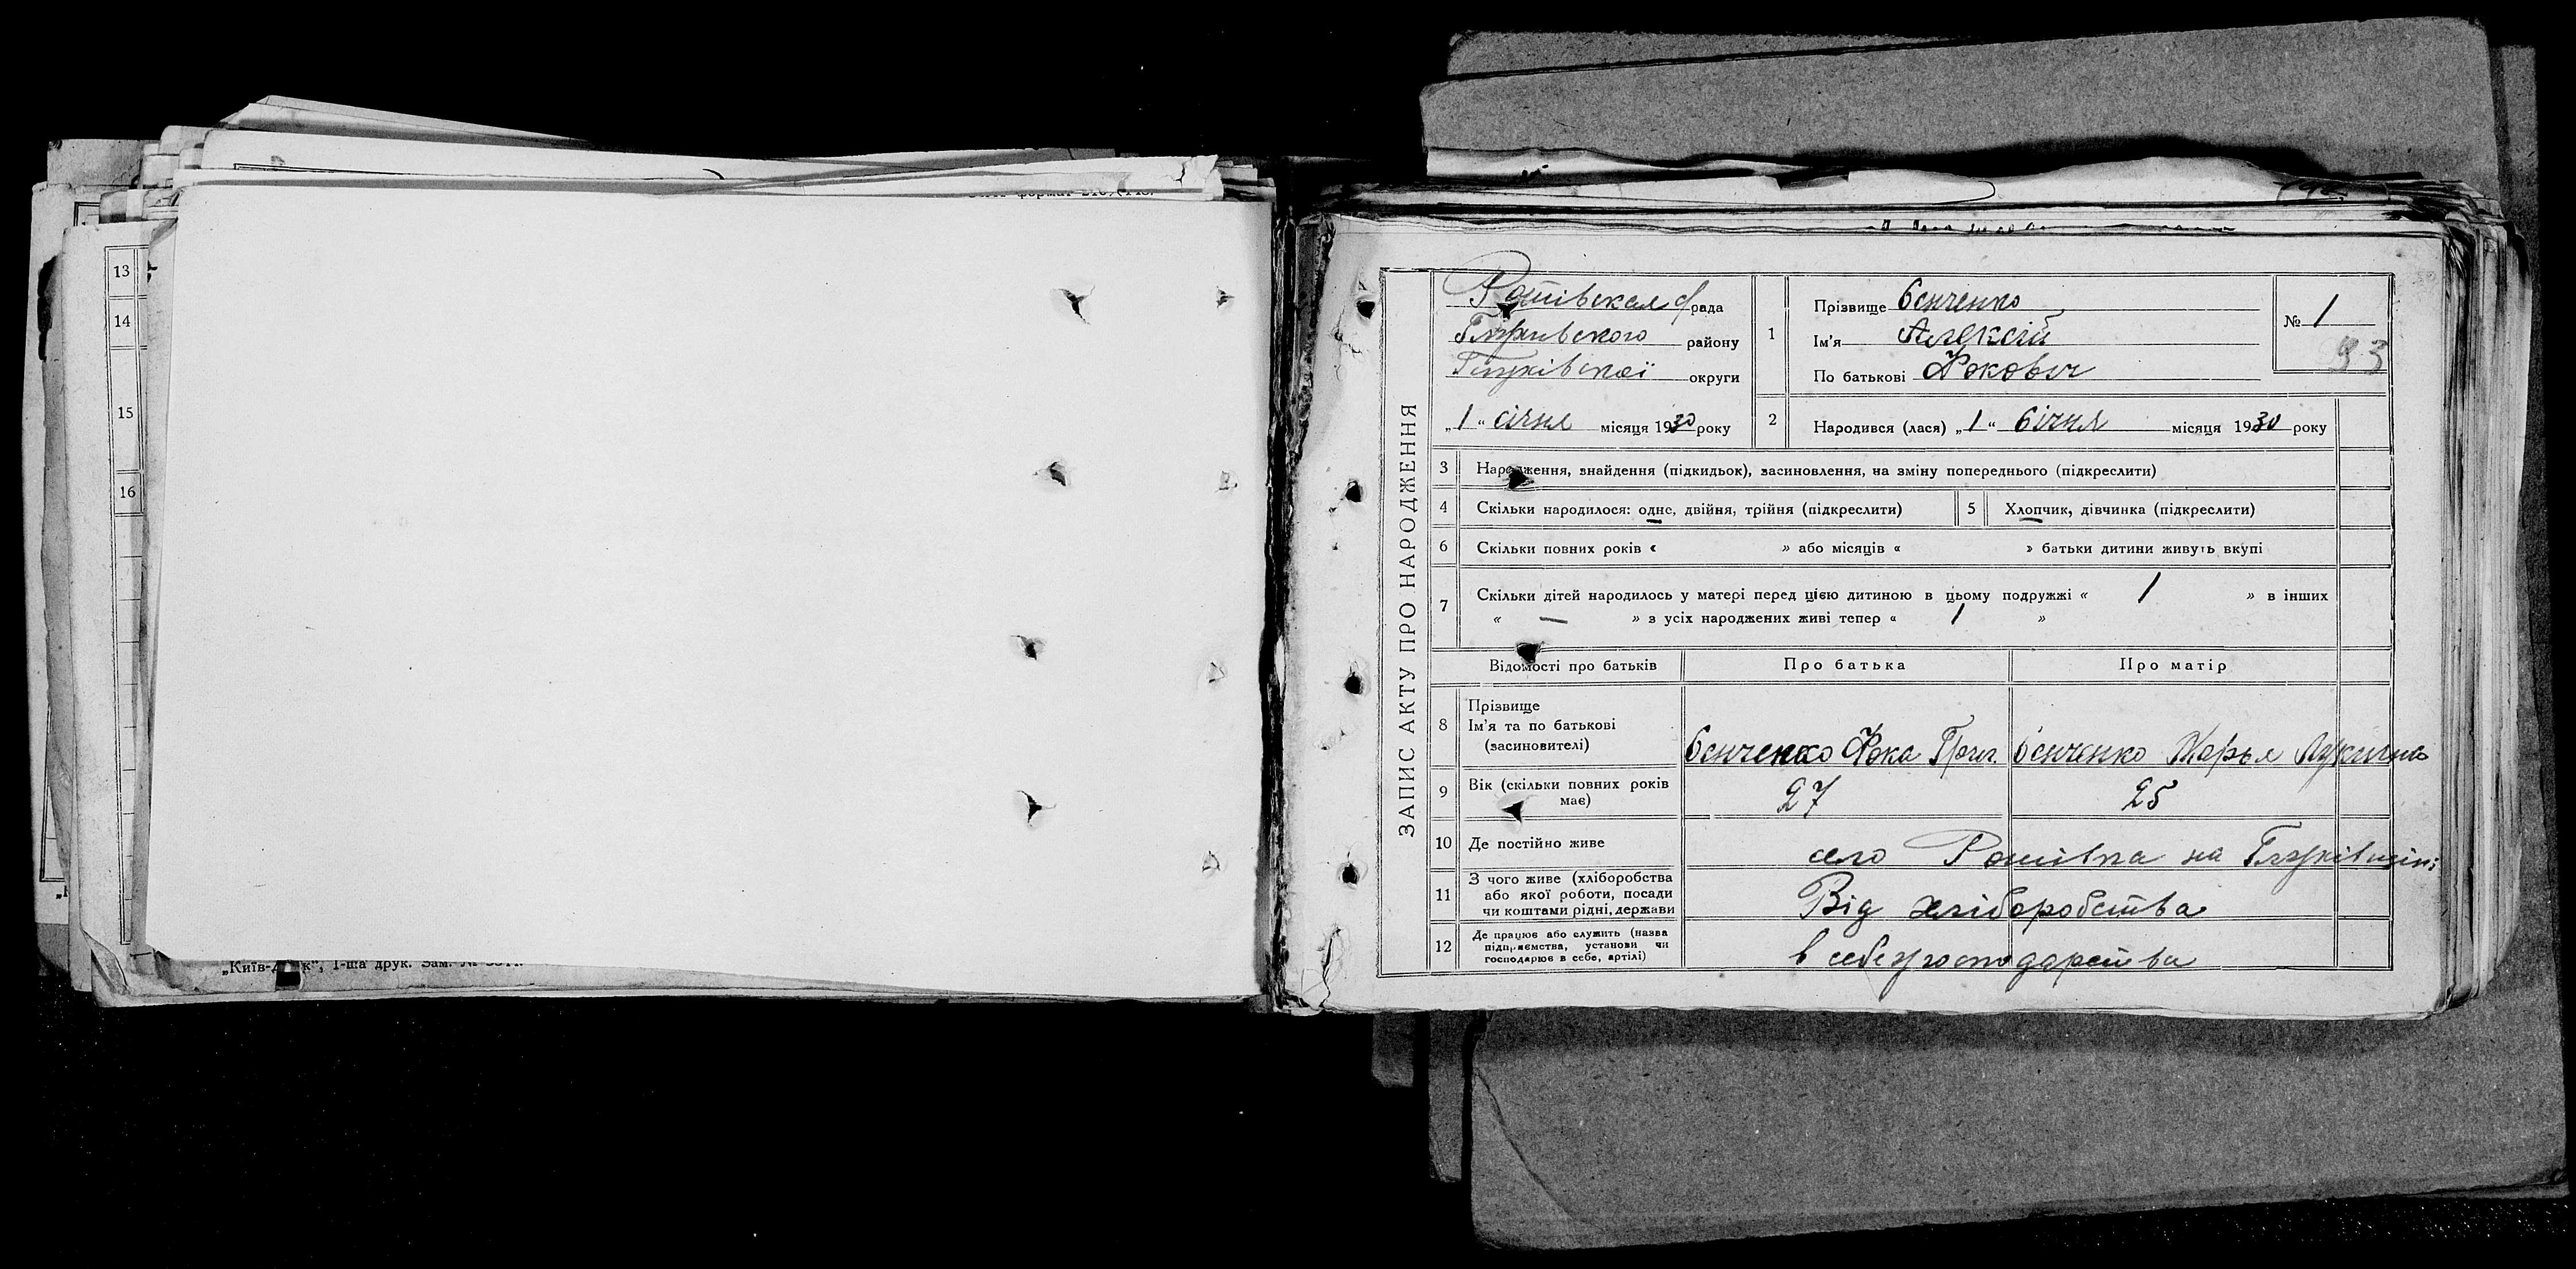 13
14
15
16
„Київ-Друк", 1-ша друк. Зам. №
ЗАПИС АКТУ ПРО НАРОДЖЕННЯ
рада
району
Глухівської округи
„1" січня місяця 1930 року
1
Прізвище Сенченко
Ім'я Алексій
По батькові Фокович
№ 1
93
2 Народився (лася) „1" Січня місяця 1930 року
3 Народження, знайдення (підкидьок), засиновлення, на зміну попереднього (підкреслити)
4 Скільки народилося: одне, двійня, трійня (підкреслити) 5 Хлопчик, дівчинка (підкреслити)
6 Скільки повних років « » або місяців « » батьки дитини живуть вкупі
7 Скільки дітей народилось у матері перед цією дитиною в цьому подружжі « 1 » в інших
« — » з усіх народжених живі тепер « 1 »
Відомості про батьків Про батька Про матір
8 Прізвище
Ім'я та по батькові
(засиновителі)
Сенченко Фока Григ. Сенченко Марья Лукична
9 Вік (скільки повних років має) 27 25
10 Де постійно живе село на Глухівщині
11 З чого живе (хліборобства
або якої роботи, посади
чи коштами рідні, держави
Від хліборобства
12 Де працює або служить (назва
підприємства, установи чи
господарює в себе, артілі)
в себе господарства